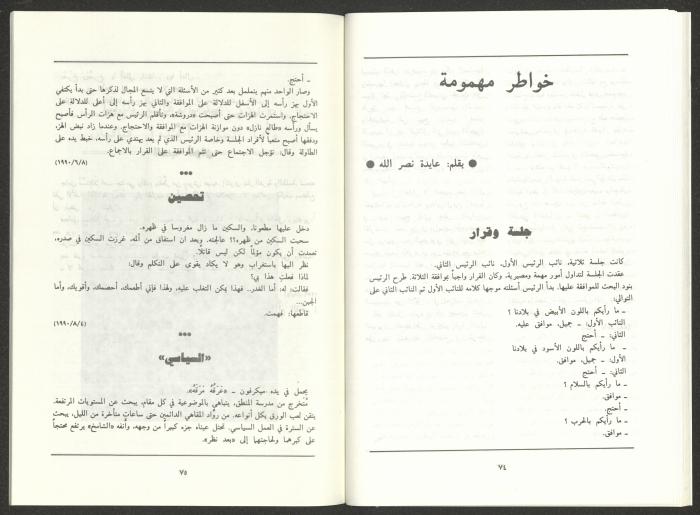 خواطر مهمومة
● بقلم: عايدة نصر الله ●
جلسة وقرار
كانت جلسة ثلاثية، نائب الرئيس الأول، نائب الرئيس الثاني.
عقدت الجلسة لتداول أمور مهمة ومصيرية، وكان القرار واجباً بموافقة الثلاثة. طرح الرئيس
بنود البحث للموافقة عليها. بدأ الرئيس أسئلته موجها كلامه للنائب الأول ثم النائب الثاني على
التوالي:
ـ ما رأيكم باللون الأبيض في بلادنا ؟
النائب الأول: ـ جميل، موافق عليه.
الثاني: ـ أحتج
ـ ما رأيكم باللون الأسود في بلادنا
الأول: ـ جميل، موافق.
الثاني: ـ أحتج
ـ ما رأيكم بالسلام ؟
ـ موافق.
ـ أحتج.
ـ ما رأيكم بالحرب ؟
ـ موافق.
٧٤
ـ أحتج.
وصار الواحد منهم يتململ بعد كثير من الأسئلة التي لا يتسع المجال لذكرها حتى بدأ يكتفي
الأول بهز رأسه إلى الأسفل للدلالة على الموافقة والثاني بهز رأسه إلى أعلى للدلالة على
الاحتجاج. واستمرت الهزات حتى أصبحت «دروشة»، وتأقلم الرئيس مع هزات الرأس فأصبح
يسأل ورأسه «طالع نازل» دون موازنة الهزات مع الموافقة والاحتجاج. وعندما زاد نبض الهز،
ودقتها أصبح متعباً لأفراد الجلسة وخاصة الرئيس الذي لم يعد يهتدي على رأسه، خبط يده على
الطاولة وقال: نؤجل الاجتماع حتى تتم الموافقة على القرار بالاجماع.
(١٩٩٠/٦/٨)
●●●
تحصين
دخل عليها مطعونا، والسكين ما زال مغروسا في ظهره.
سحبت السكين من ظهره؟؟ عالجته. وبعد ان استفاق من ألمه، غرزت السكين في صدره،
تعمدت أن يكون مؤلماً لكن ليس قاتلاً.
نظر اليها باستغراب وهو لا يكاد يقوى على التكلم وقال:
لماذا فعلت هذا بي؟
فقالت: له: أما الغدر.. فهذا يمكن التغلب عليه، ولهذا فإني أطعمك، أحصنك، وأقويك، وأما
الجبن...
قاطعها: فهمت.
(١٩٩٠/٨/٤)
●●●
«السياسي»
يحمل في يده ميكرفون ـ «غرقُهُ مَرَقَهُ».
مُتخرج من مدرسة المنطق، يتباهى بالموضوعية في كل مقام، يبحث عن المستويات المرتفعة.
يتقن لعب الورق بكل أنواعه. من روّاد المقاهي الدائمين حتى ساعات متأخرة من الليل، يبحث
عن السترة في العمل السياسي. تحتل عيناه جزء كبيراً من وجهه، وأنفه «الشامخ» يرتفع محتجاً
على كبرهما ولحاجتهما إلى «بعد نظر».
٧٥